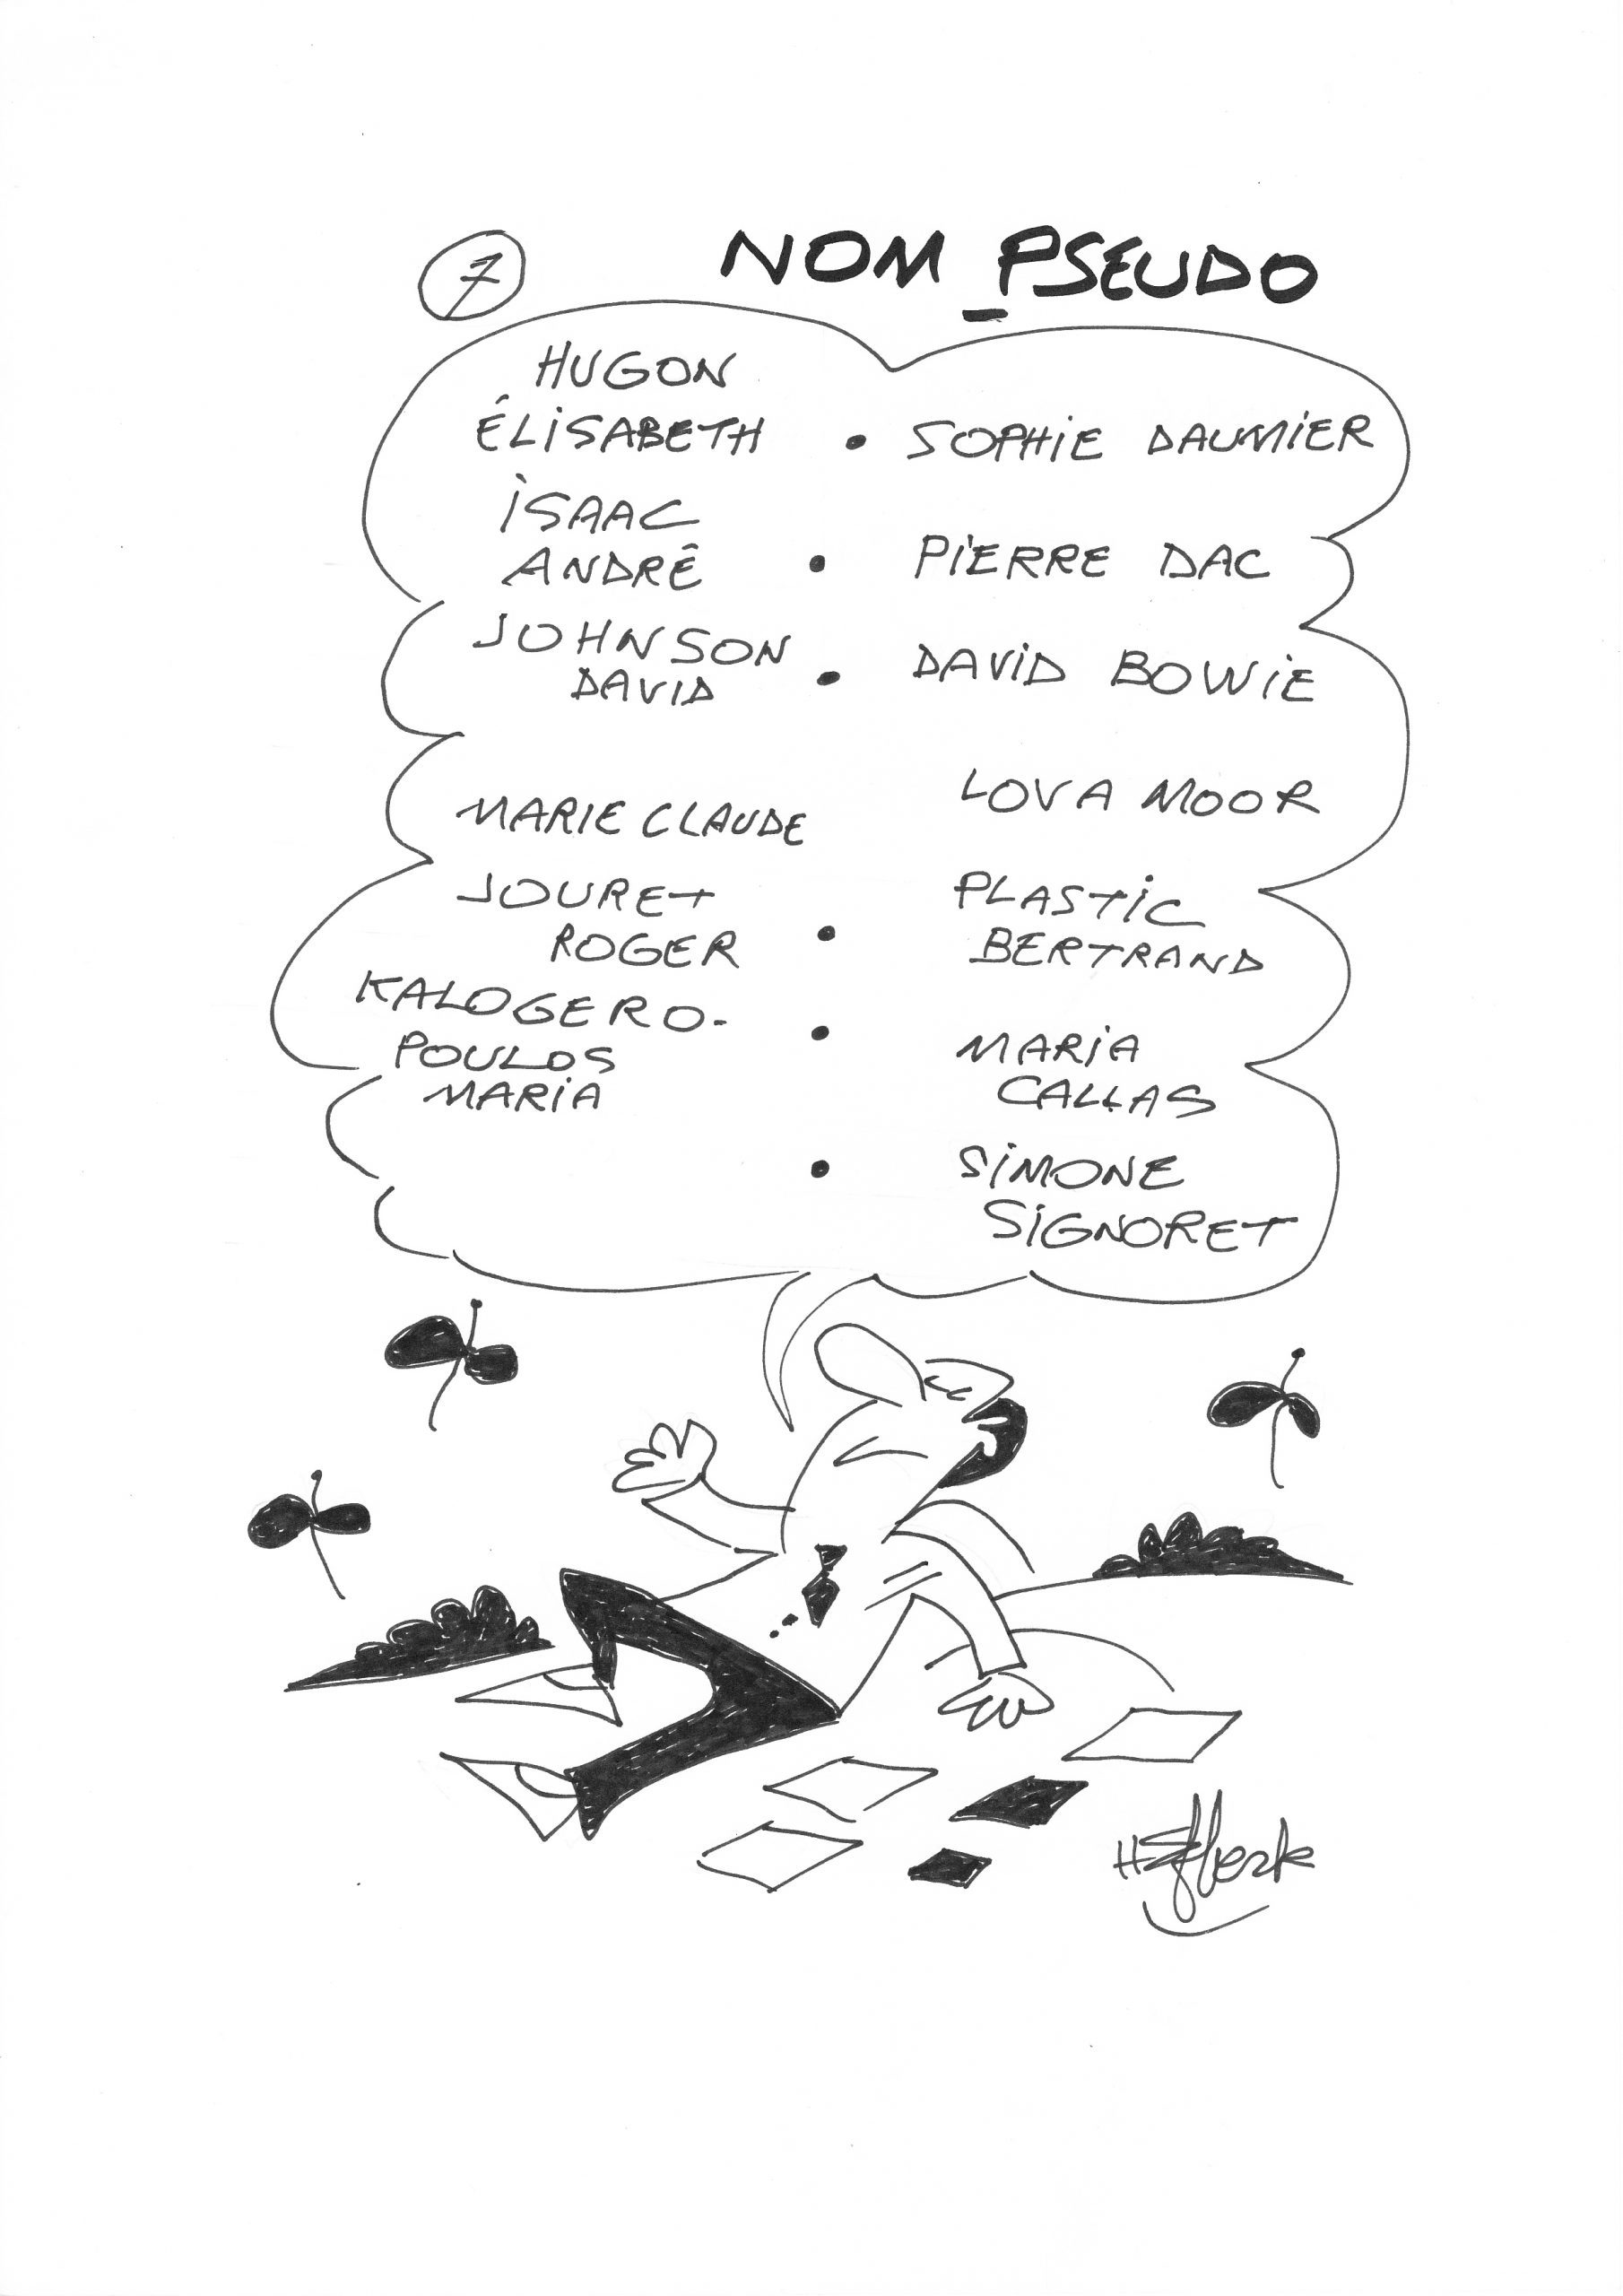 7
NOM PSEUDO
HUGON
ÉLISABETH • SOPHIE DAUMIER
ISAAC
ANDRÉ • PIERRE DAC
JOHNSON
DAVID • DAVID BOWIE
LOVA MOOR
MARIE CLAUDE
JOURET
ROGER • PLASTIC
BERTRAND
KALOGERO-
POULOS
MARIA • MARIA
CALLAS
• SIMONE
SIGNORET